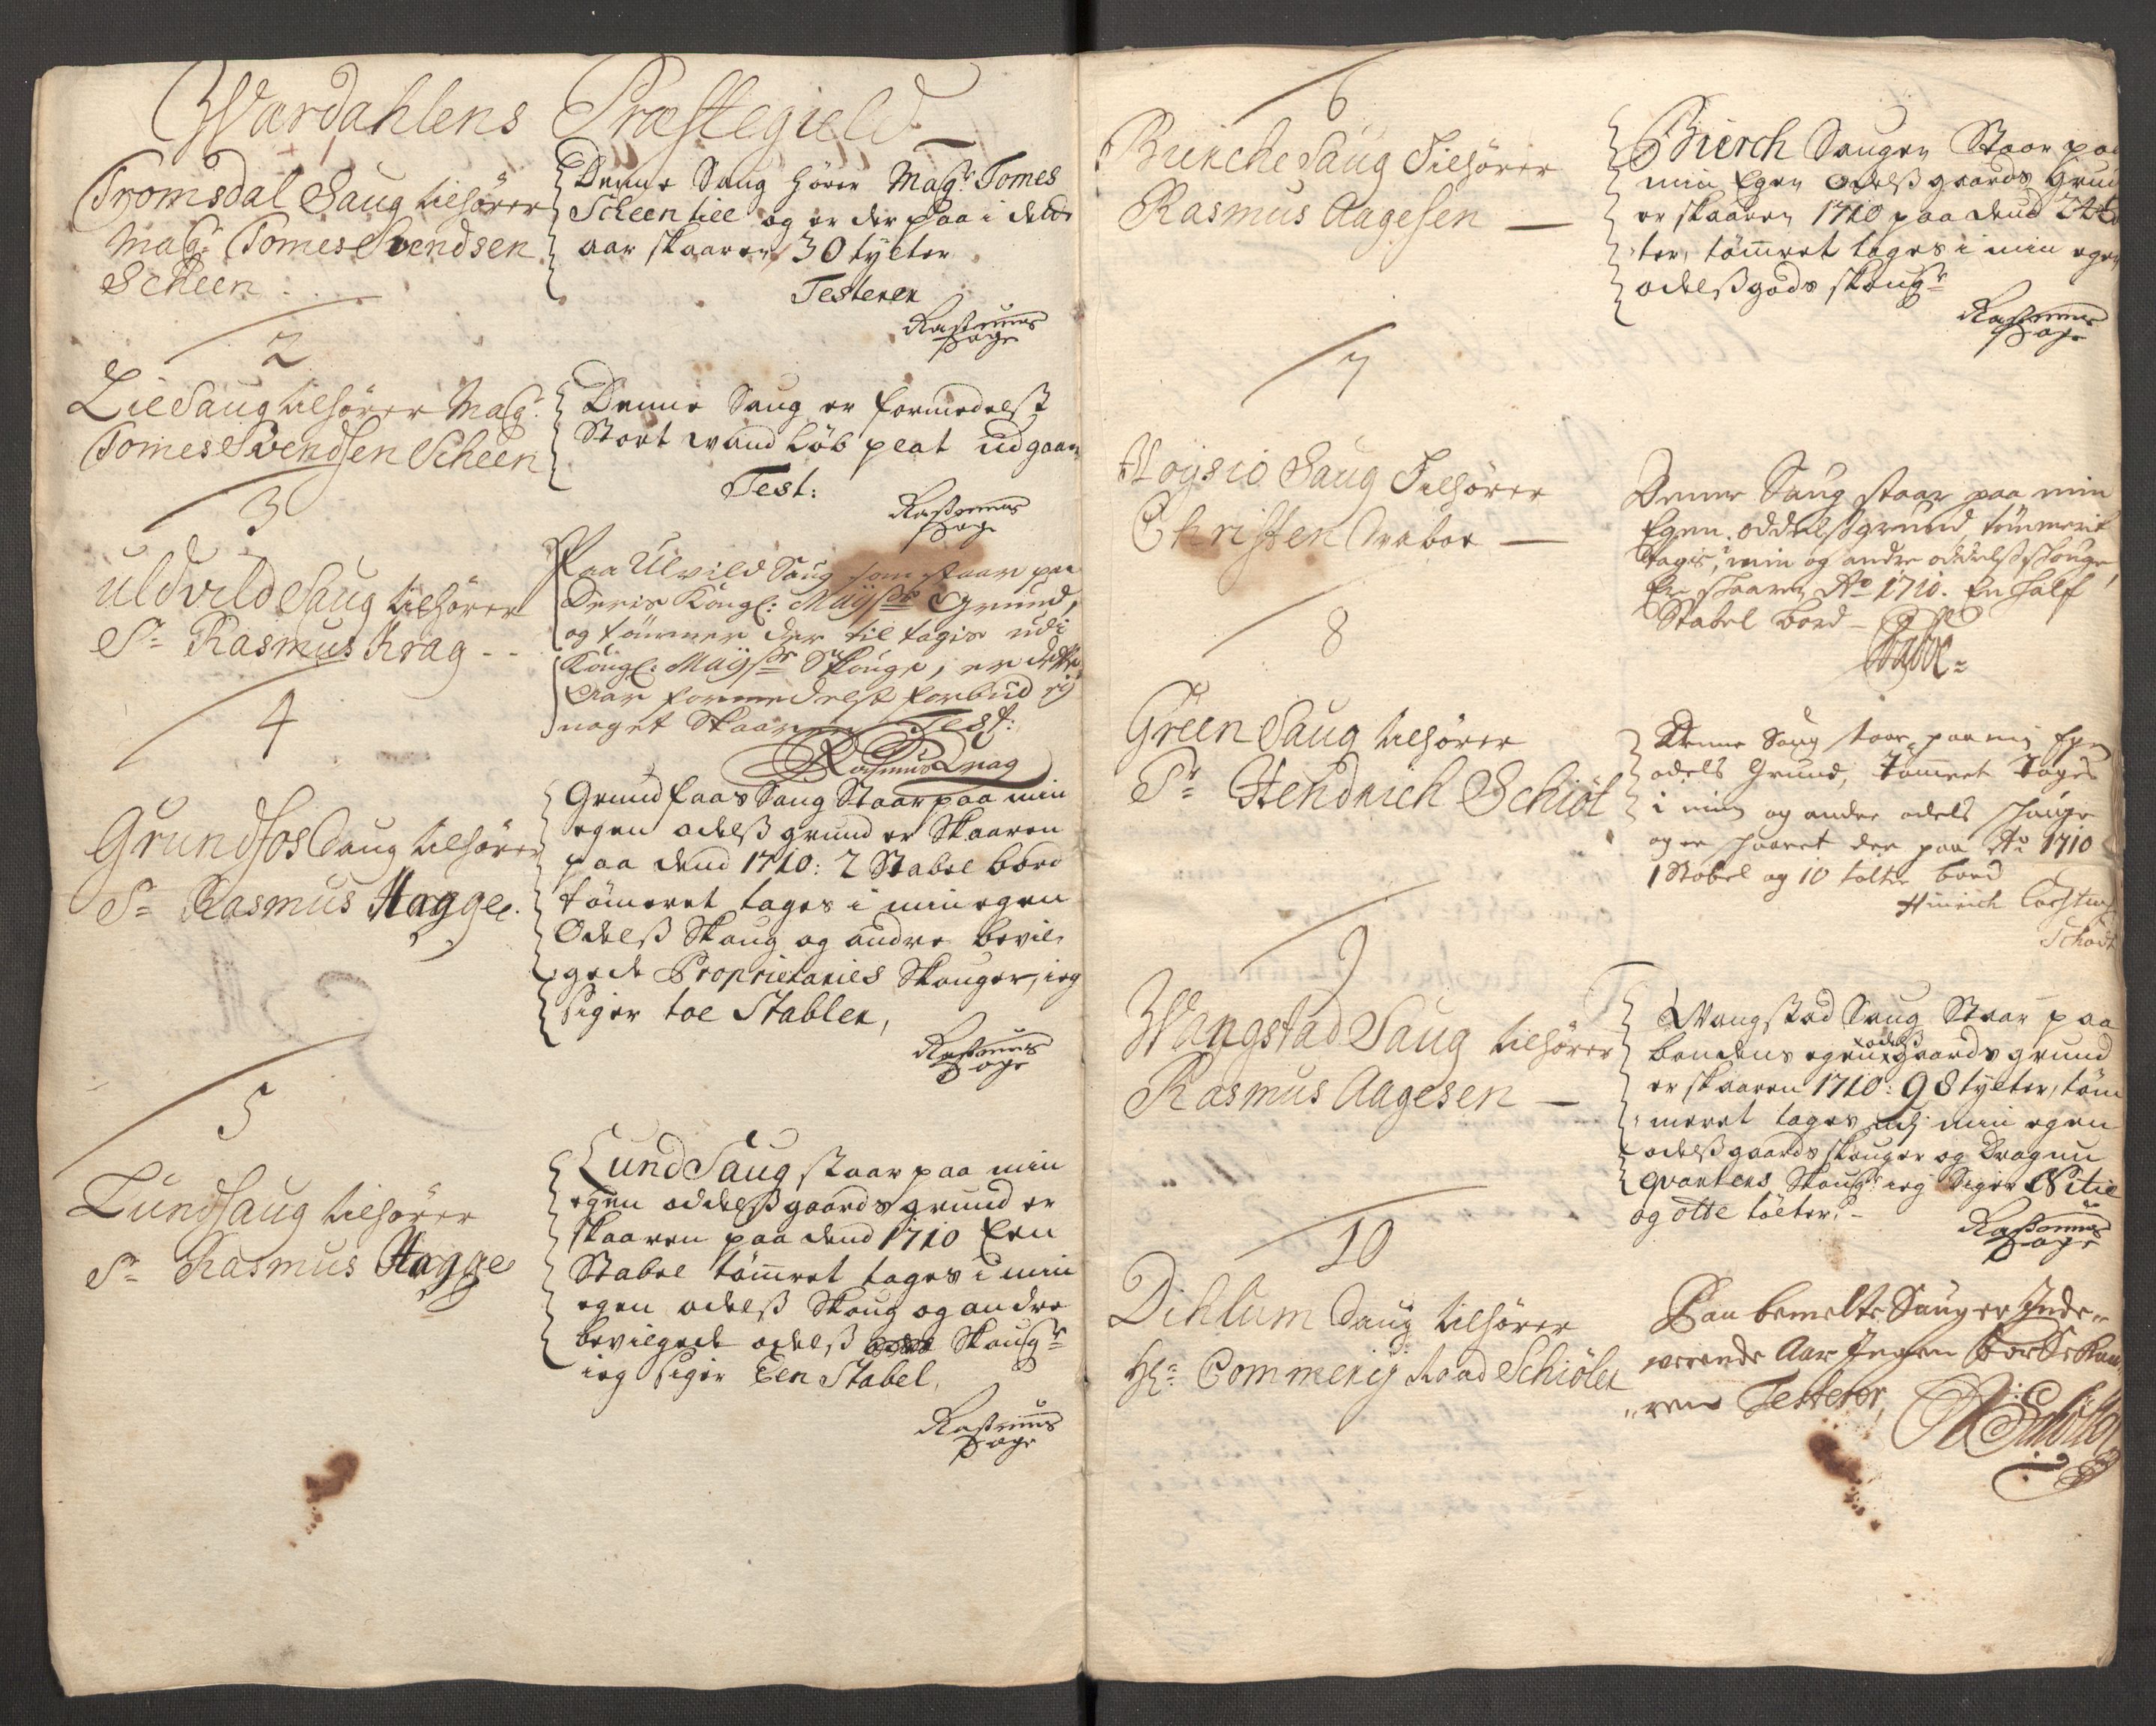 Wardahlens Præstegield
Tromsdal Saug tilhører
Mag: Tomes Svendsen
Scheen
Denne Saug hører Mag: Tomes
Scheen till og er der paa i dette
aar skaaren 30 tylter
Testerer
Rasmus
Hage
2
Lie Saug tilhører Mag:
Tomes Svendsen Scheen
Denne Saug er formedelst
Stort vand Løb plat udgaan
Test:
Rasmus
Hage
3
Uldvild Saug tilhører
Sr Rasmus Krag
Paa Ulvild Saug som staar paa
Deris Kongl: Mayst Grund,
og tømmer der til tagis udi
Kongl: Mayst Skouge, er dette
Aar formedelst forbud ej
noget Skaaren Test:
Rasmus Krag
4
Grundfos Saug tilhører
Sr Rasmus Hagge
Grundfaas Saug Staar paa min
egen odelss grund er Skaaren
paa dend 1710: 2 Stabel bord
tømeret tages i min egen
Odelss Skoug og andre bevil-
gede Proprietaries Skouger, ieg
siger toe Stabler,
Rasmus
Hage
5
Lund Saug tilhører
Sr Rasmus Hagge
Lund Saug staar paa min
egen oddelss gaards grund er
skaaren paa dend 1710 Een
Stabel tømret tages i min
egen odelss Skoug og andre
bevilgede odelss Skougr
ieg siger Een Stabel,
Rasmus
Hage
6
Bierche Saug Tilhører
Rasmus Aagesen
Bierch Saugen Staar paa
min Egen Odelss gaards Grun
er skaaren 1710 paa dend
ter, tømret tages i min egen
odelssgods skougr
Rasmus
Hage
7
Saug Tilhører
Christen
Denne Saug staar paa min
Egen oddelssgrund, tømmerit
tagis i min og andre oddelss skouge
Er skaaren Ao 1710. En half
Stabel bord
8
Green Saug tilhører
Sr Hendrich Schiøt
Denne Saug staar paa mij Egen
odels Grund, Tømret Tages
i min og andre odels skouge
og er skaaret der paa Ao 1710
1 Stabel og 10 tolter bord
Hinrich
9
Wangstad Saug tilhører
Rasmus Aagesen
Wangstad Saug Staar paa
bondens egen odelss gaards grund
er skaaren 1710: 98 tylter, tøm
meret tages udj min egen
odelssgaards skouger og Dragun
qvarters Skougr ieg Siger Nitie
og otte tolter.
Rasmus
Hage
10
Dihlum Saug tilhører
Hr Commerij Raad Schiøler
Paa bemelte Saug er Inde-
verende Aar Ingen bord skaa-
ren Testerer,